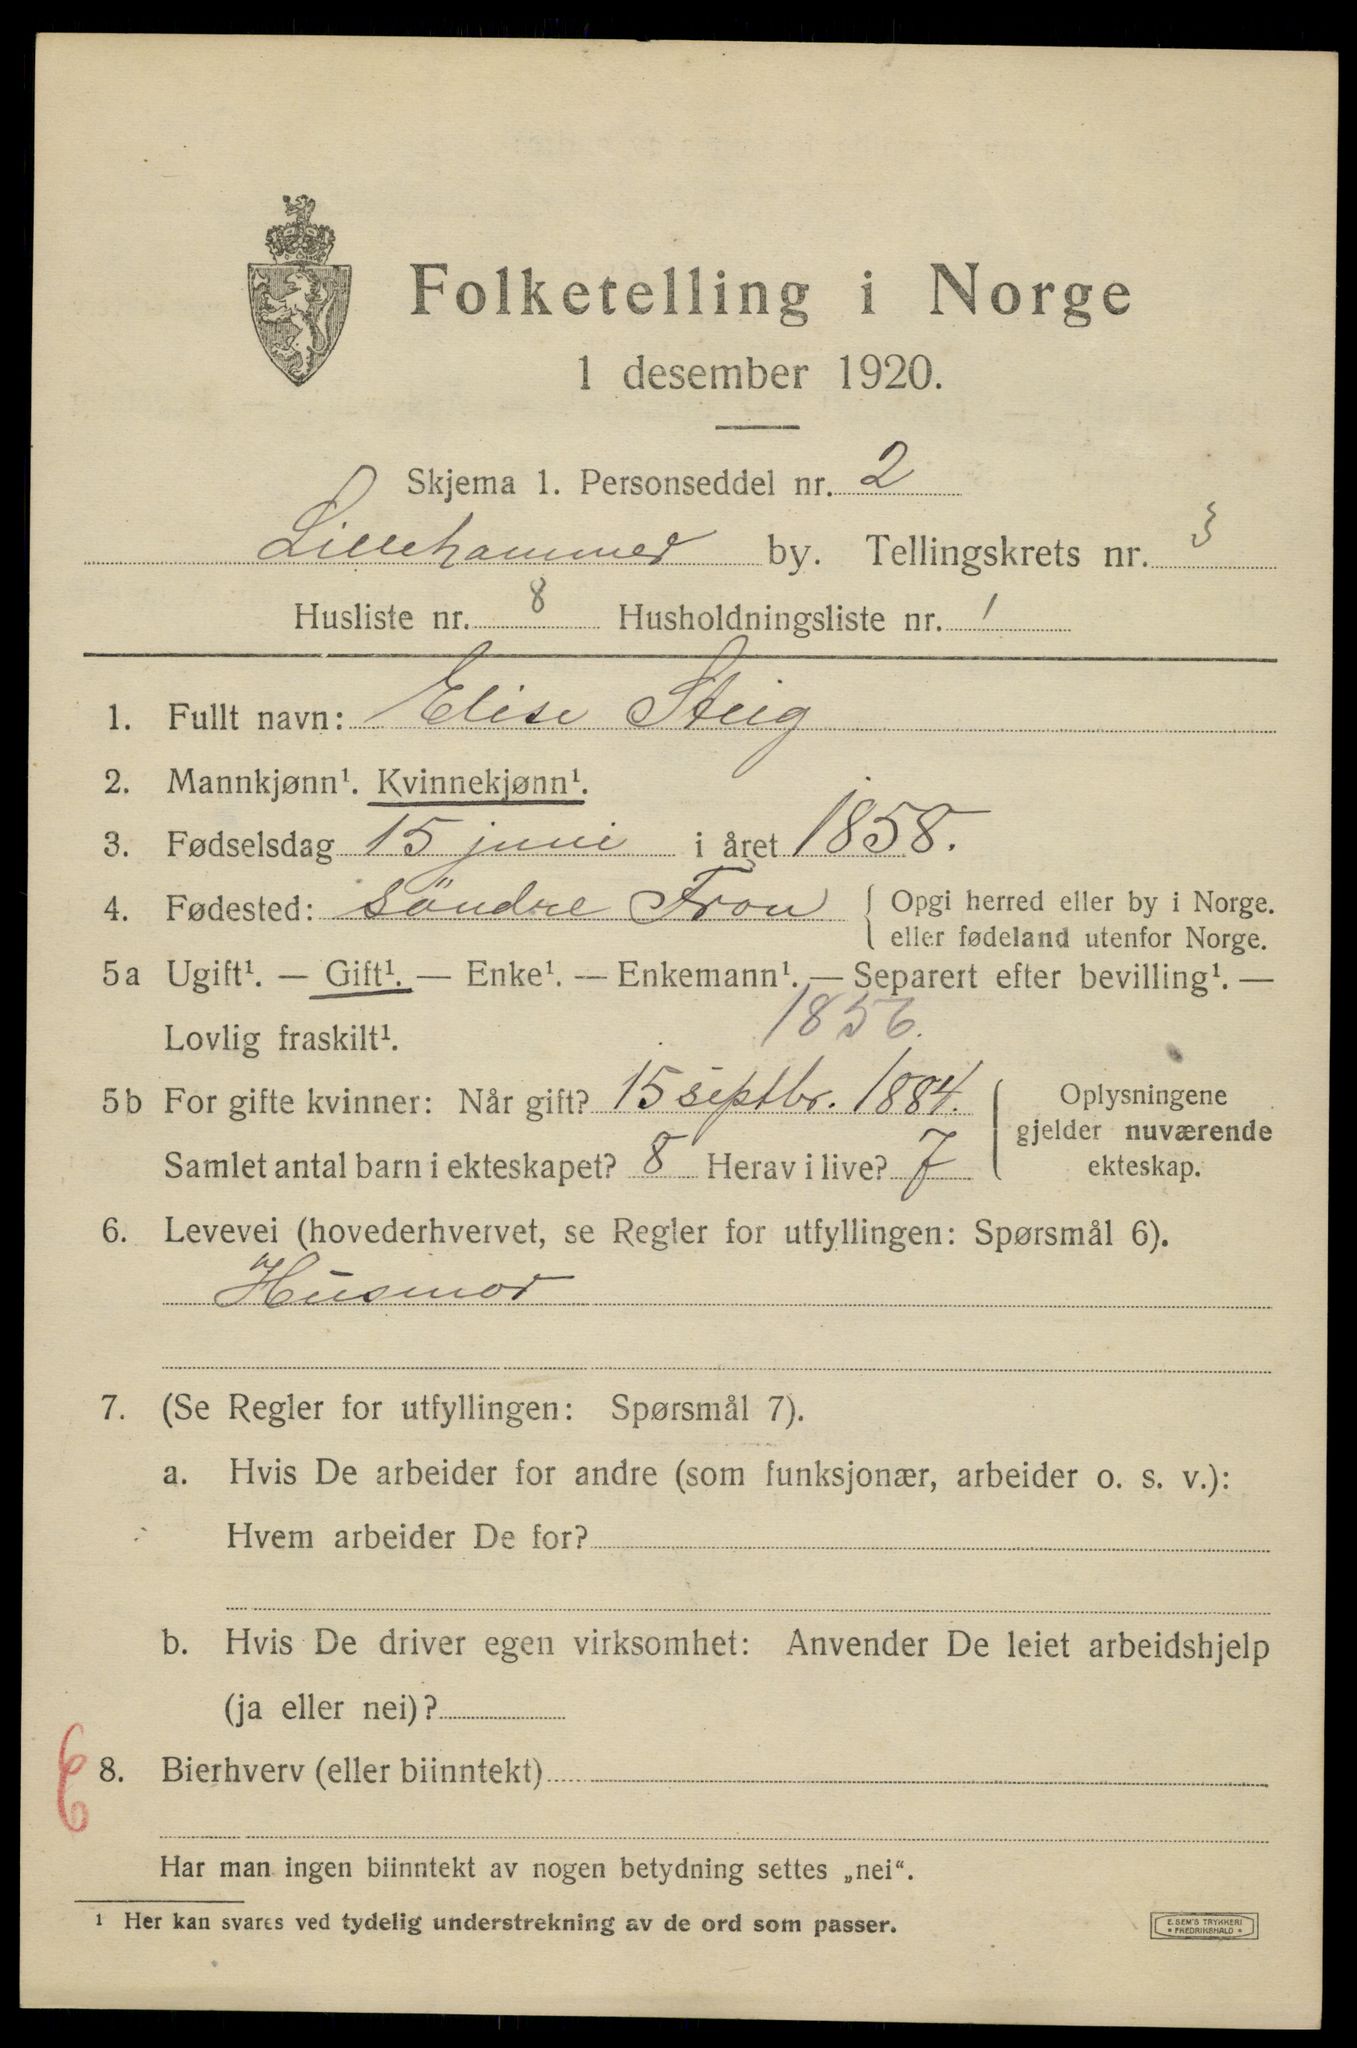 Folketelling i Norge
1 desember 1920.
Skjema 1. Personseddel nr. 2
Lillehammer by. Tellingskrets nr. 3
Husliste nr. 8 Husholdningsliste nr. 1
1. Fullt navn: Elise Steig
2. Mannkjønn¹. Kvinnekjønn¹.
3. Fødselsdag 15 juni i året 1858.
4. Fødested: söndre Fron { Opgi herred eller by i Norge.
eller fødeland utenfor Norge.
5a Ugift¹. — Gift¹. — Enke¹. — Enkemann¹. — Separert efter bevilling¹. —
Lovlig fraskilt¹. 1856.
5b For gifte kvinner: Når gift? 15 septbr. 1884. { Oplysningene
gjelder nuværende
Samlet antal barn i ekteskapet? 8 Herav i live? 7 ekteskap.
6. Levevei (hovederhvervet, se Regler for utfyllingen: Spørsmål 6).
Husmor
7. (Se Regler for utfyllingen: Spørsmål 7).
a. Hvis De arbeider for andre (som funksjonær, arbeider o. s. v.):
Hvem arbeider De for?
b. Hvis De driver egen virksomhet: Anvender De leiet arbeidshjelp
(ja eller nei)?
8. Bierhverv (eller biinntekt)
Har man ingen biinntekt av nogen betydning settes „nei“.
¹ Her kan svares ved tydelig understrekning av de ord som passer.
E. SEM'S TRYKKERI
* FREDRIKSHALD *